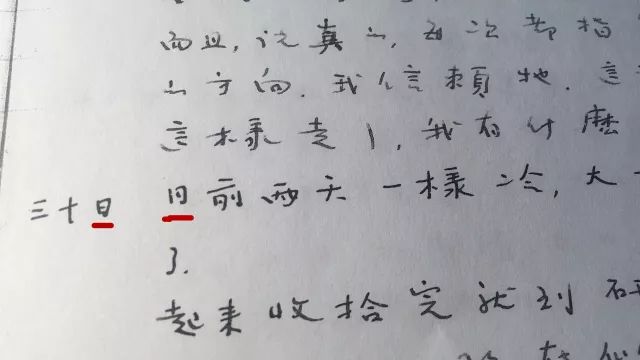 而且,说真的,每次都指
的方向.我信頼她.這
這樣走了,我有什麼
三十日 同前兩天一樣冷,大
了.
起来收拾完就到研